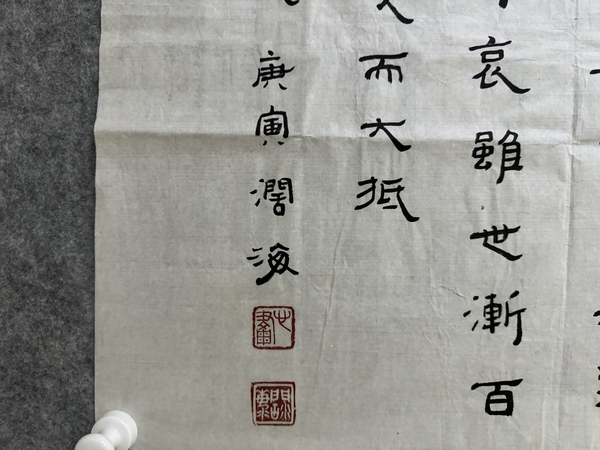 哀雖世漸百
而大抵
庚寅濶海